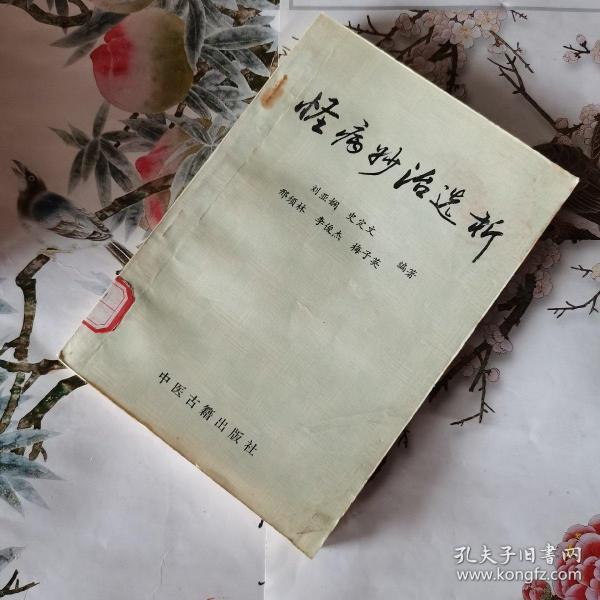 怪病妙治选析
刘亚娴 史定文
邢须林 李俊杰 梅子英 编著
中医古籍出版社
孔夫子旧书网
www.kongfz.com